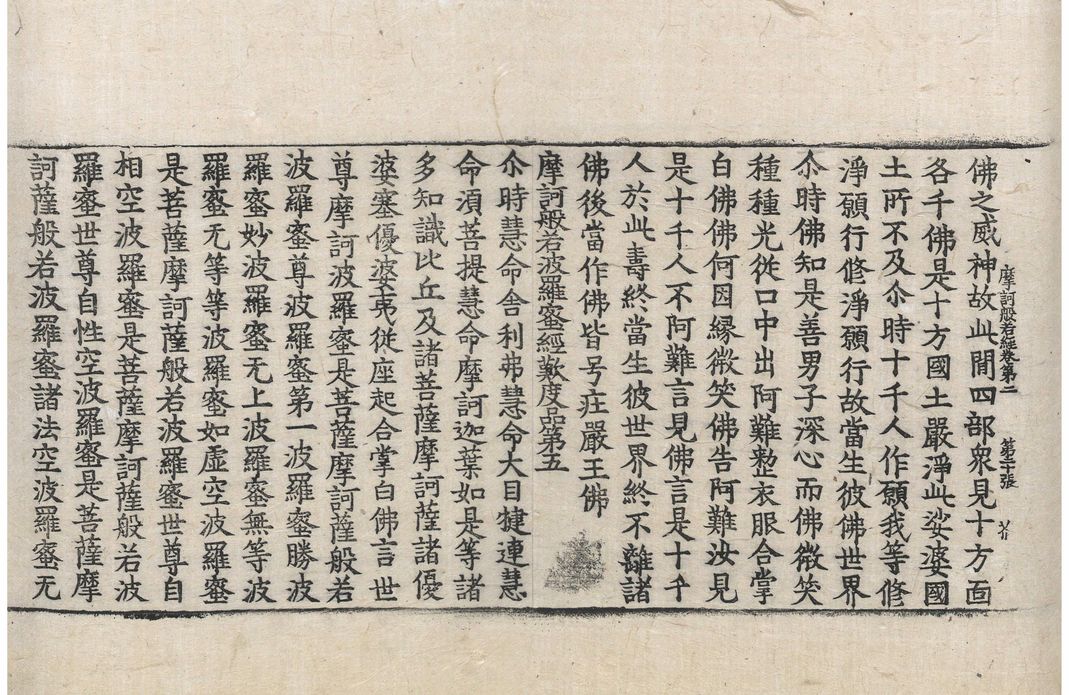 摩訶般若經卷第二　第三十張　芥
佛之威神故此間四部衆見十方面
各千佛是十方國土嚴淨此娑婆國
土所不及尒時十千人作願我等修
淨願行修淨願行故當生彼佛世界
尒時佛知是善男子深心而佛微笑
種種光從口中出阿難整衣服合掌
白佛佛何因緣微笑佛告阿難汝見
是十千人不阿難言見佛言是十千
人於此壽終當生彼世界終不離諸
佛後當作佛皆号莊嚴王佛
摩訶般若波羅蜜經歎度品第五
尒時慧命舍利弗慧命大目揵連慧
命湏菩提慧命摩訶迦葉如是等諸
多知識比丘及諸菩薩摩訶薩諸優
婆塞優婆夷從座起合掌白佛言世
尊摩訶波羅蜜是菩薩摩訶薩般若
波羅蜜尊波羅蜜第一波羅蜜勝波
羅蜜妙波羅蜜无上波羅蜜無等波
羅蜜无等等波羅蜜如虛空波羅蜜
是菩薩摩訶薩般若波羅蜜世尊自
相空波羅蜜是菩薩摩訶薩般若波
羅蜜世尊自性空波羅蜜是菩薩摩
訶薩般若波羅蜜諸法空波羅蜜无